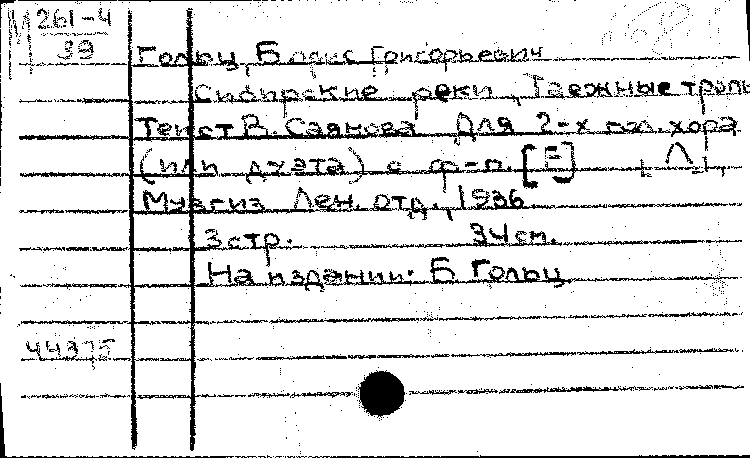 М 261-4
39
Гольц, Борис Григорьевич
Сибирские реки, Таежные тропы
Текст В. Саянова Для 2-х гол. хора
(или дуэта) с ф-п. [Е] Л.,
Музгиз Лен. отд., 1936.
3 стр. 34 см.
На издании: Б Гольц
44375